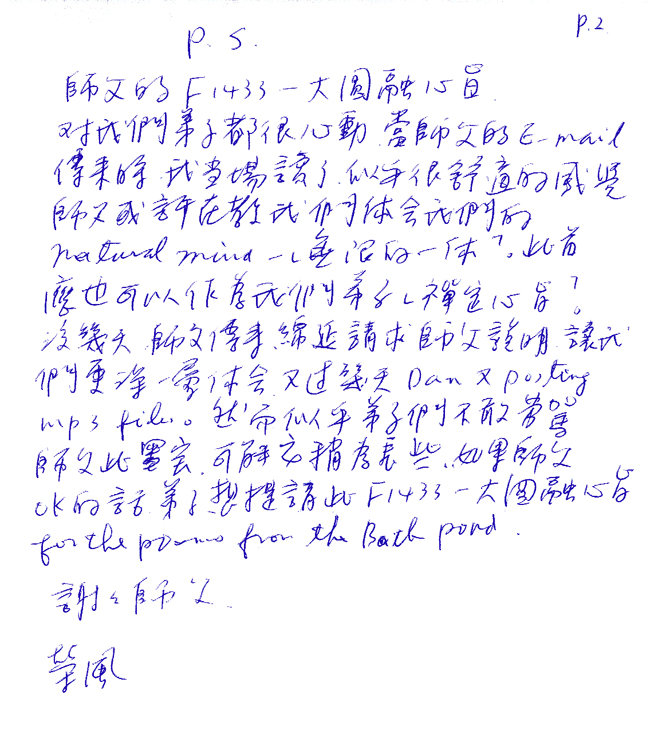 P.2
P. S.
師父的 F1433 一大圓融心旨
对我們弟子都很心動. 當師父的 E-mail
傳来時 我当場讀了. 似乎很舒適的感覺
師父或許在教我們体会我們的
natural mind 一 無限的一体?。此首
麼也可以作為我們弟子 禪定心旨?
沒幾天 師父傳来 綿延請求師父説明 讓我
們更深一層体会 又过幾天 Dan 又 posting
mp3 file。然而似乎弟子們不敢
師父此 可 稍為長些. 如果師父
ok的話 弟子想提請此 F1433 一大圓融心旨
for the promo from the Bath pond.
謝々師父.
榮風